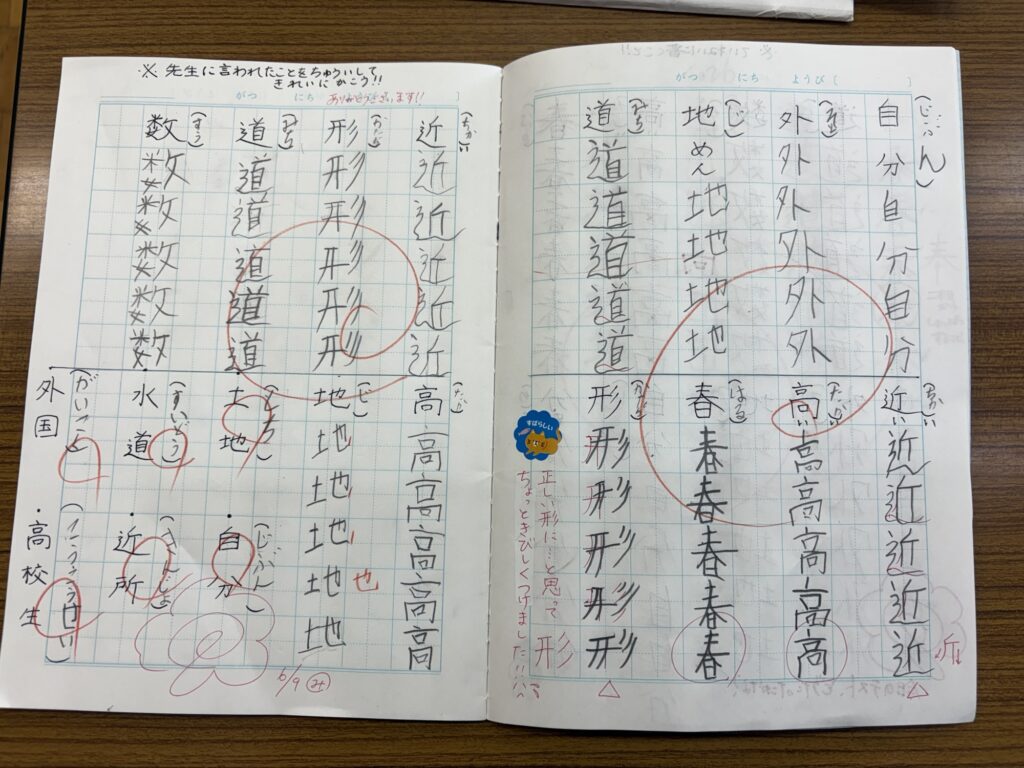 がつ にち ようび(
自分自分自分
(じぶん)
外外外外外外
(そと)
地めん地地地地
(じ)
道道道道道道
(みち)
近い近近近近近
(ちかい)
近
高い高高高高高
(たかい)
春春春春春春
(はる)
形形形形形形
(かたち)
形
すばらしい
正しい形に…と思って
ちょっときびしくつけました!!
※先生に言われたことをちゅういして
きれいにかこう!!
がつ にち
ありがとうございます!!
近近近近近近
(ちかい)
形形形形形形
(かたち)
道道道道道道
(みち)
数数数数数数
(すう)
高高高高高高
(たかい)
地地地地地地
(じ)
也
・土地
(とち)
・自分
(じぶん)
・水道
(すいどう)
・近所
(きんじょ)
・外国
(がいこく)
・高校生
(こうこうせい)
6/9